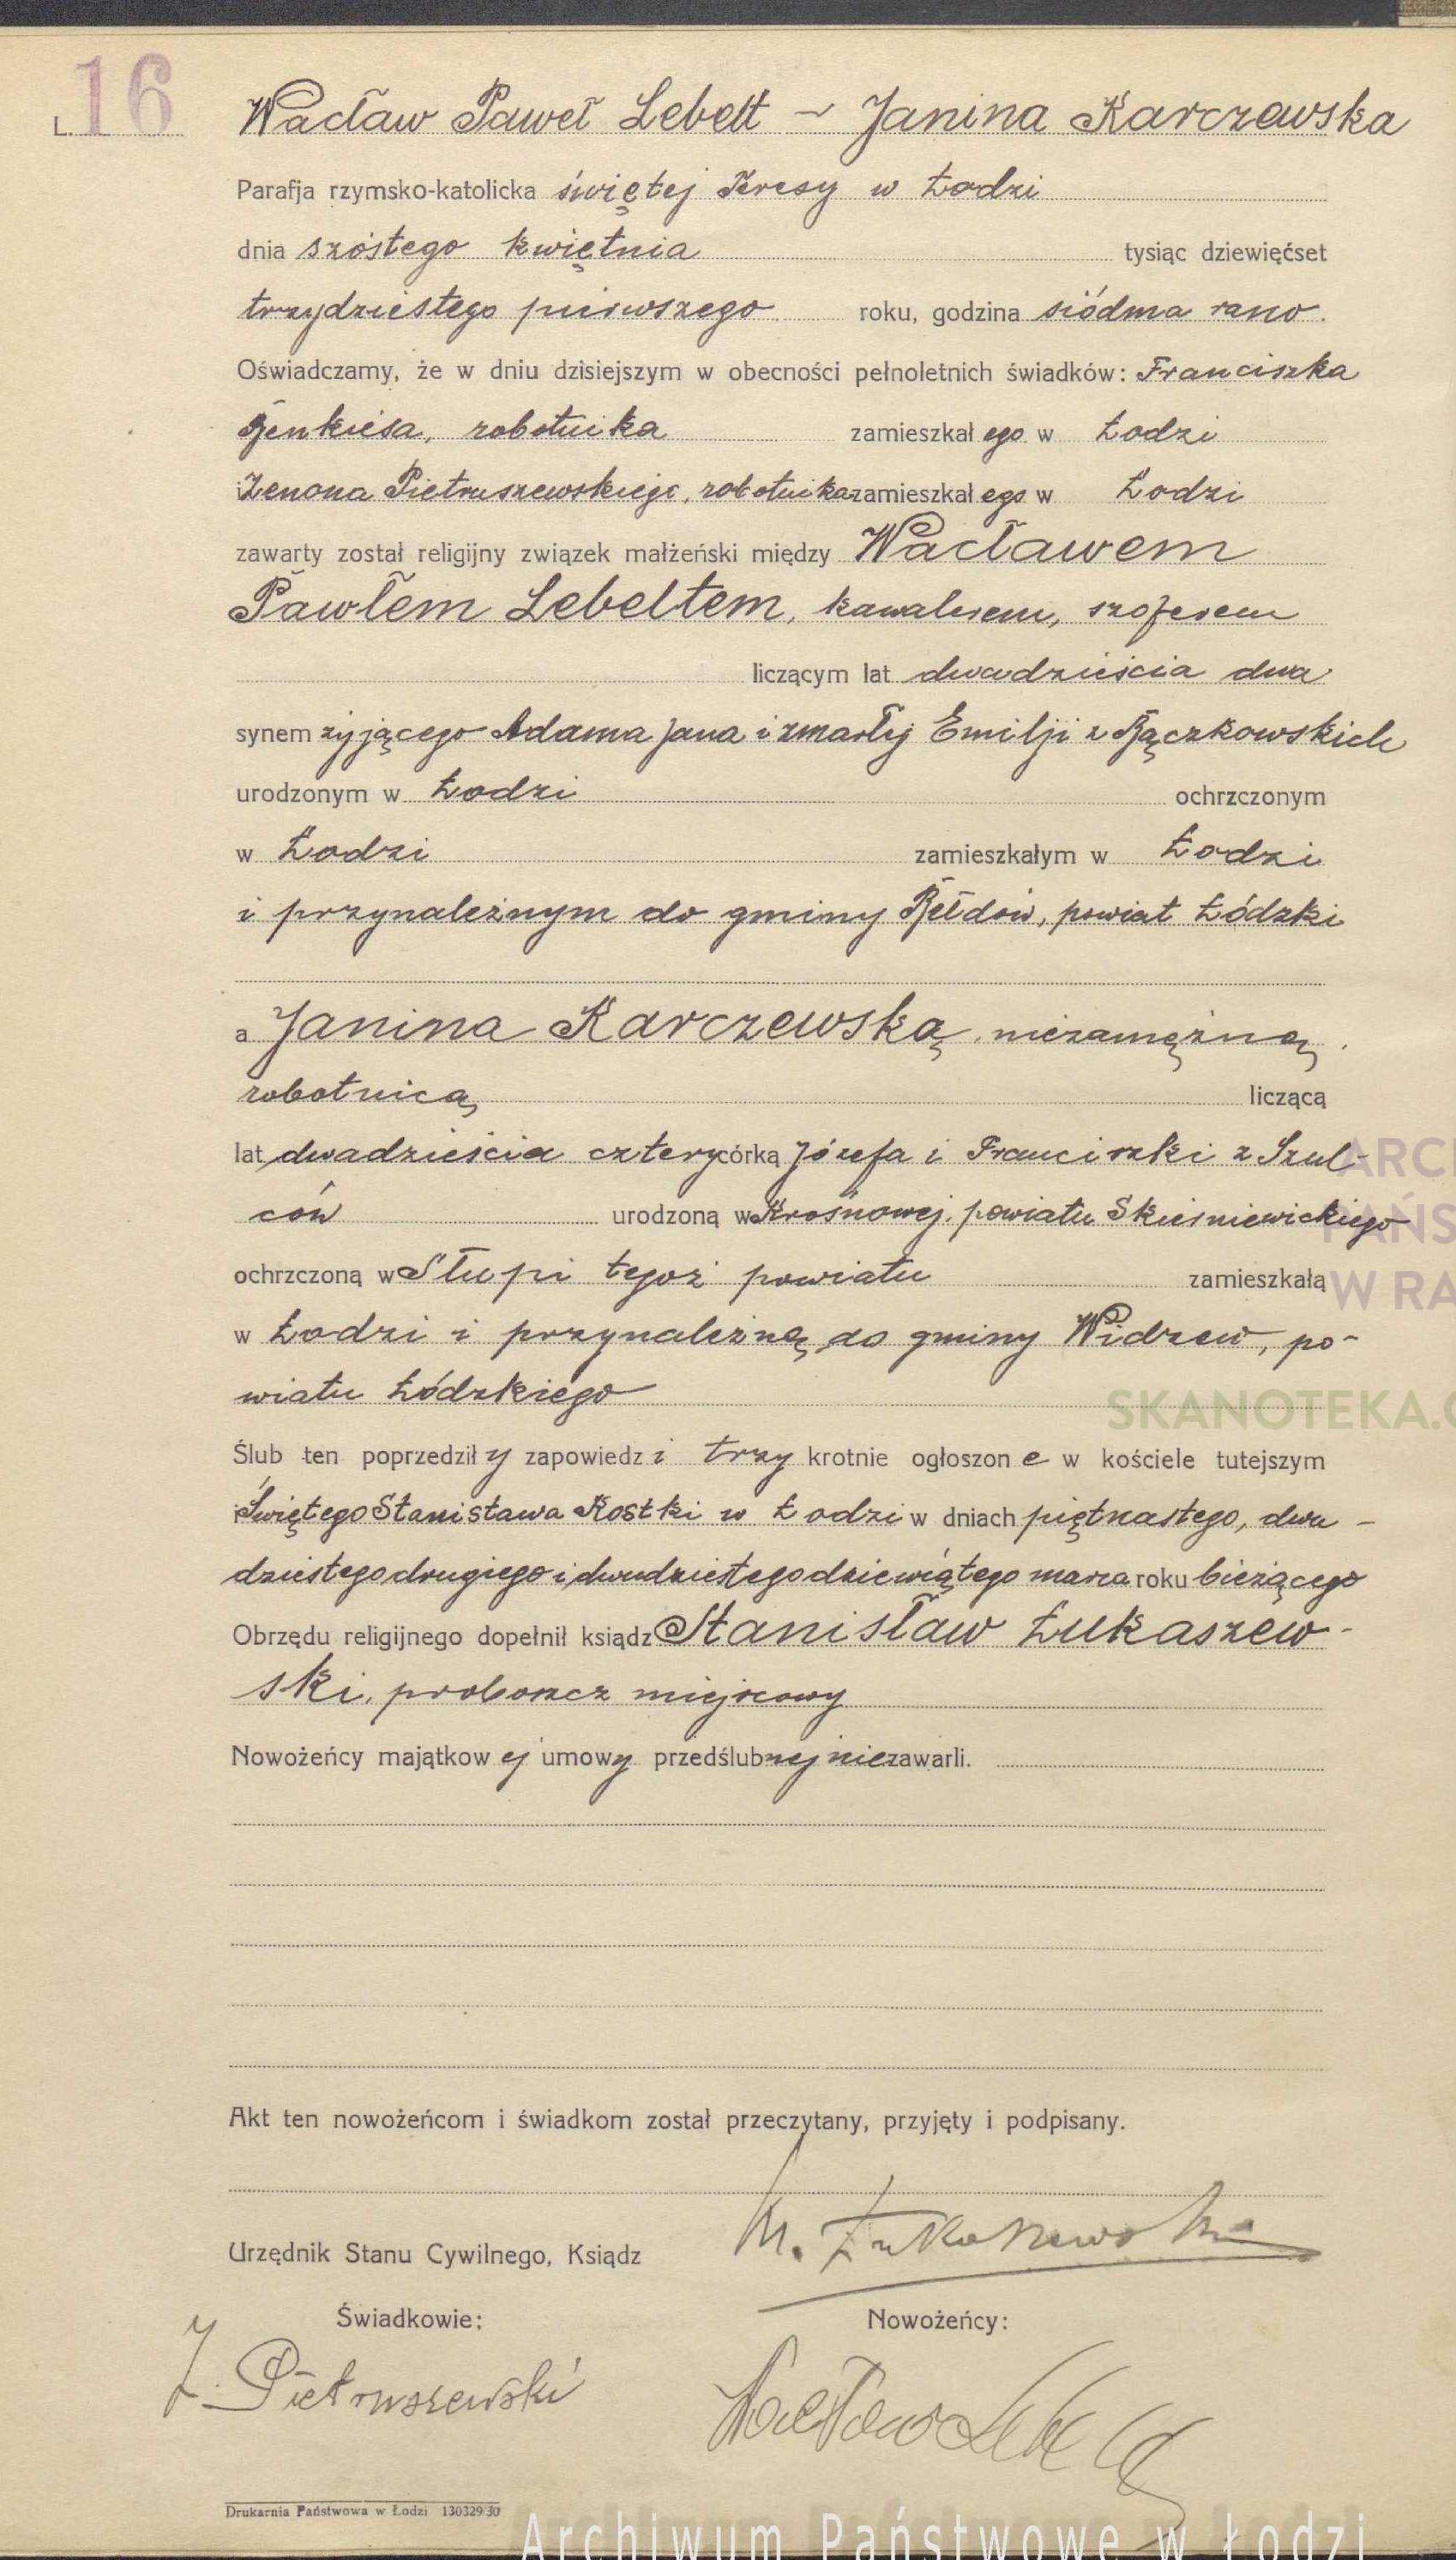 L. 16
Wacław Paweł Lebelt – Janina Karczewska
Parafja rzymsko-katolicka świętej Teresy w Łodzi
dnia szóstego kwiętnia tysiąc dziewięćset
trzydziestego pierwszego roku, godzina siódma rano.
Oświadczamy, że w dniu dzisiejszym w obecności pełnoletnich świadków: Franciszka
robotnika zamieszkał ego w Łodzi
i Zenona Pietruszewskiego, robotnika zamieszkał ego w Łodzi
zawarty został religijny związek małżeński między Wacławem
Pawłem Lebeltem, kawalerem, szoferem
liczącym lat dwadzieścia dwa
synem żyjącego Adama Jana i zmarłej Emilji z Bączkowskich
urodzonym w Łodzi ochrzczonym
w Łodzi zamieszkałym w Łodzi
i przynależnym do gminy Bełdów, powiat Łódzki
a Janina Karczewską, niezamężną,
robotnicą liczącą
lat dwadzieścia cztery córką Józefa i Franciszki z Szul-
ców urodzoną w Krosnowej, powiatu Skierniewickiego
ochrzczoną w Słupi tegoż powiatu zamieszkałą
w Łodzi i przynależną do gminy Widzew, po-
wiatu Łódzkiego
Ślub ten poprzedził y zapowiedz i trzy krotnie ogłoszon e w kościele tutejszym
i Świętego Stanisława Kostki w Łodzi w dniach piętnastego, dwu-
dziestego drugiego i dwudziestego dziewiątego marca roku bieżącego
Obrzędu religijnego dopełnił ksiądz Stanisław Łukaszew-
ski, proboszcz miejscowy
Nowożeńcy majątkow ej umowy przedślubnej nie zawarli.
Akt ten nowożeńcom i świadkom został przeczytany, przyjęty i podpisany.
Urzędnik Stanu Cywilnego, Ksiądz Łukaszewski
Świadkowie: Nowożeńcy:
Z. Pietruszewski Wacław Lebelt
Drukarnia Państwowa w Łodzi 130329/30
ARC
PAŃS
W RA
SKANOTEKA.
Archiwum Państwowe w Łodzi